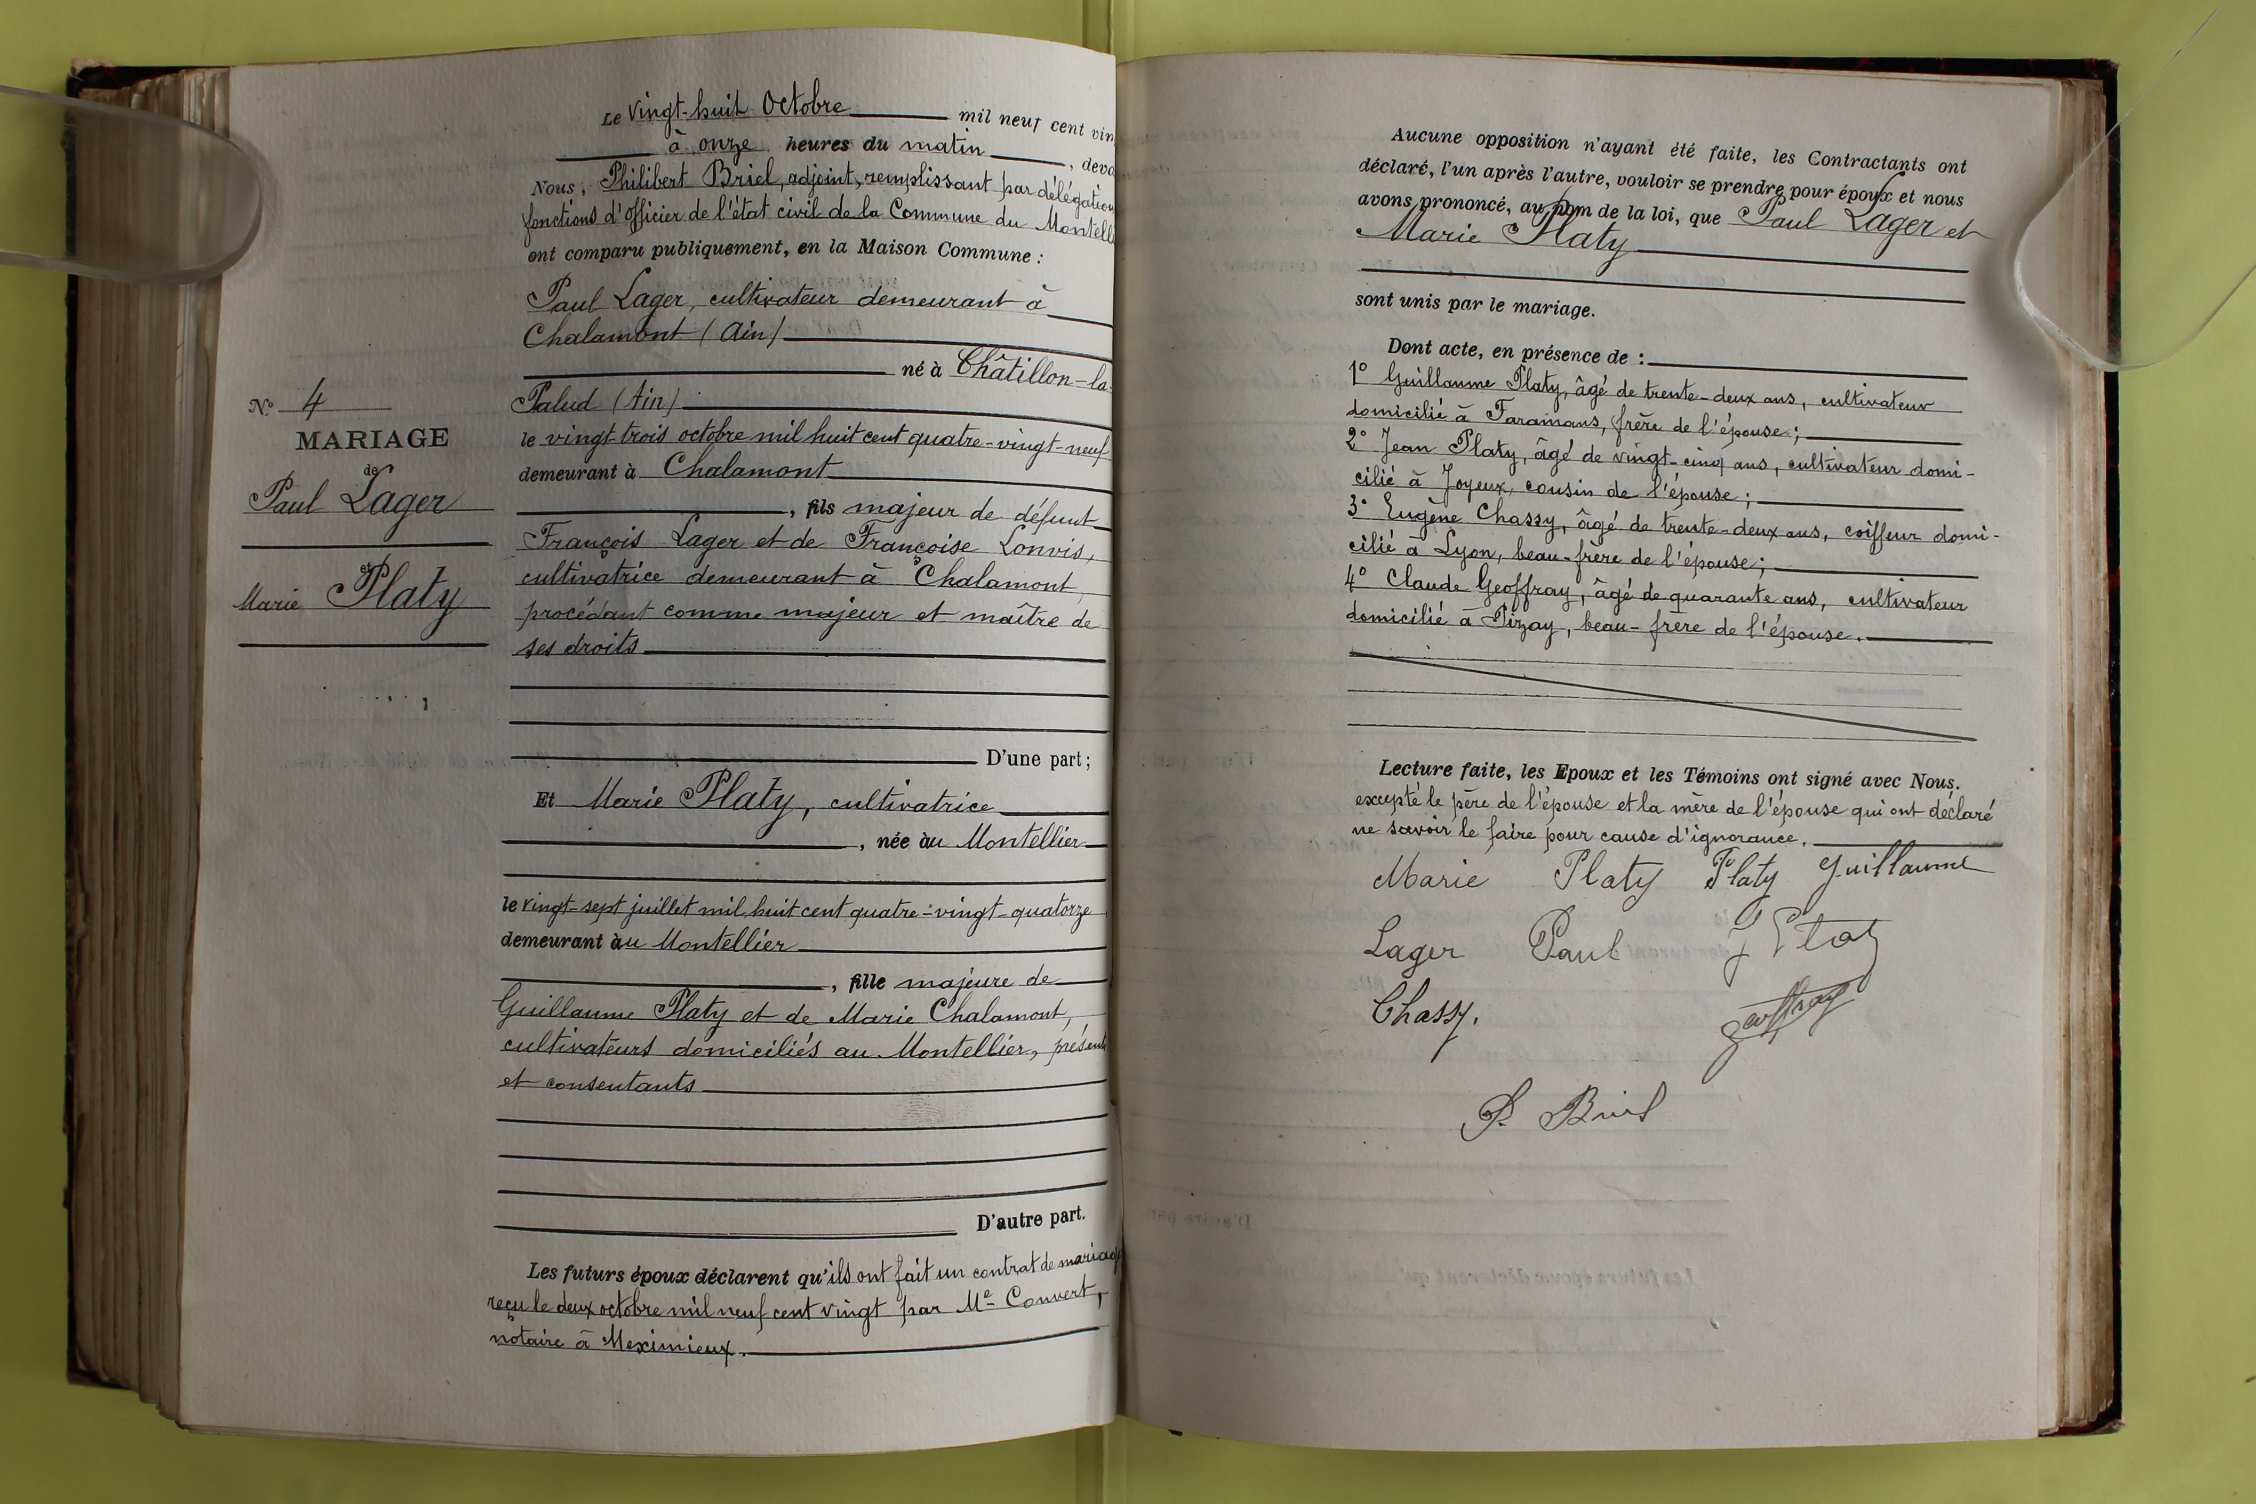 Le vingt-huit Octobre mil neuf cent vin
à onze heures du matin, deva
Nous, Philibert Briel, adjoint, remplissant par délégation
fonctions d'officier de l'état civil de la Commune du Montell
ont comparu publiquement, en la Maison Commune :
Paul Lager, cultivateur demeurant à
Chalamont (Ain)
né à Châtillon-la-
Palud (Ain)
le vingt-trois octobre mil huit cent quatre-vingt-neuf
demeurant à Chalamont
, fils majeur de défunt
François Lager et de Françoise Lonvis,
cultivatrice demeurant à Chalamont,
procédant comme majeur et maître de
ses droits
D'une part ;
N° 4
MARIAGE
de
Paul Lager
et
Marie Platy
Et Marie Platy, cultivatrice
, née àu Montellier
le vingt-sept juillet mil huit cent quatre-vingt-quatorze
demeurant àu Montellier
, fille majeure de
Guillaume Platy et de Marie Chalamont,
cultivateurs domiciliés au Montellier, présents
et consentants
D'autre part.
Les futurs époux déclarent qu'ils ont fait un contrat de mariage
reçu le deux octobre mil neuf cent vingt par Me Convert,
notaire à Meximieux.
Aucune opposition n'ayant été faite, les Contractants ont
déclaré, l'un après l'autre, vouloir se prendre pour époux et nous
avons prononcé, au nom de la loi, que Paul Lager et
Marie Platy
sont unis par le mariage.
Dont acte, en présence de :
1° Guillaume Platy, âgé de trente-deux ans, cultivateur
domicilié à Faramans, frère de l'épouse ;
2° Jean Platy, âgé de vingt-cinq ans, cultivateur domi-
cilié à Joyeux, cousin de l'épouse ;
3° Eugène Chassy, âgé de trente-deux ans, coiffeur domi-
cilié à Lyon, beau-frère de l'épouse ;
4° Claude Geoffray, âgé de quarante ans, cultivateur
domicilié à Pizay, beau-frère de l'épouse.
Lecture faite, les Epoux et les Témoins ont signé avec Nous.
excepté le père de l'épouse et la mère de l'épouse qui ont déclaré
ne savoir le faire pour cause d'ignorance.
Marie Platy Platy Guillaume
Lager Paul
Chassy. Geoffray
P. Briel